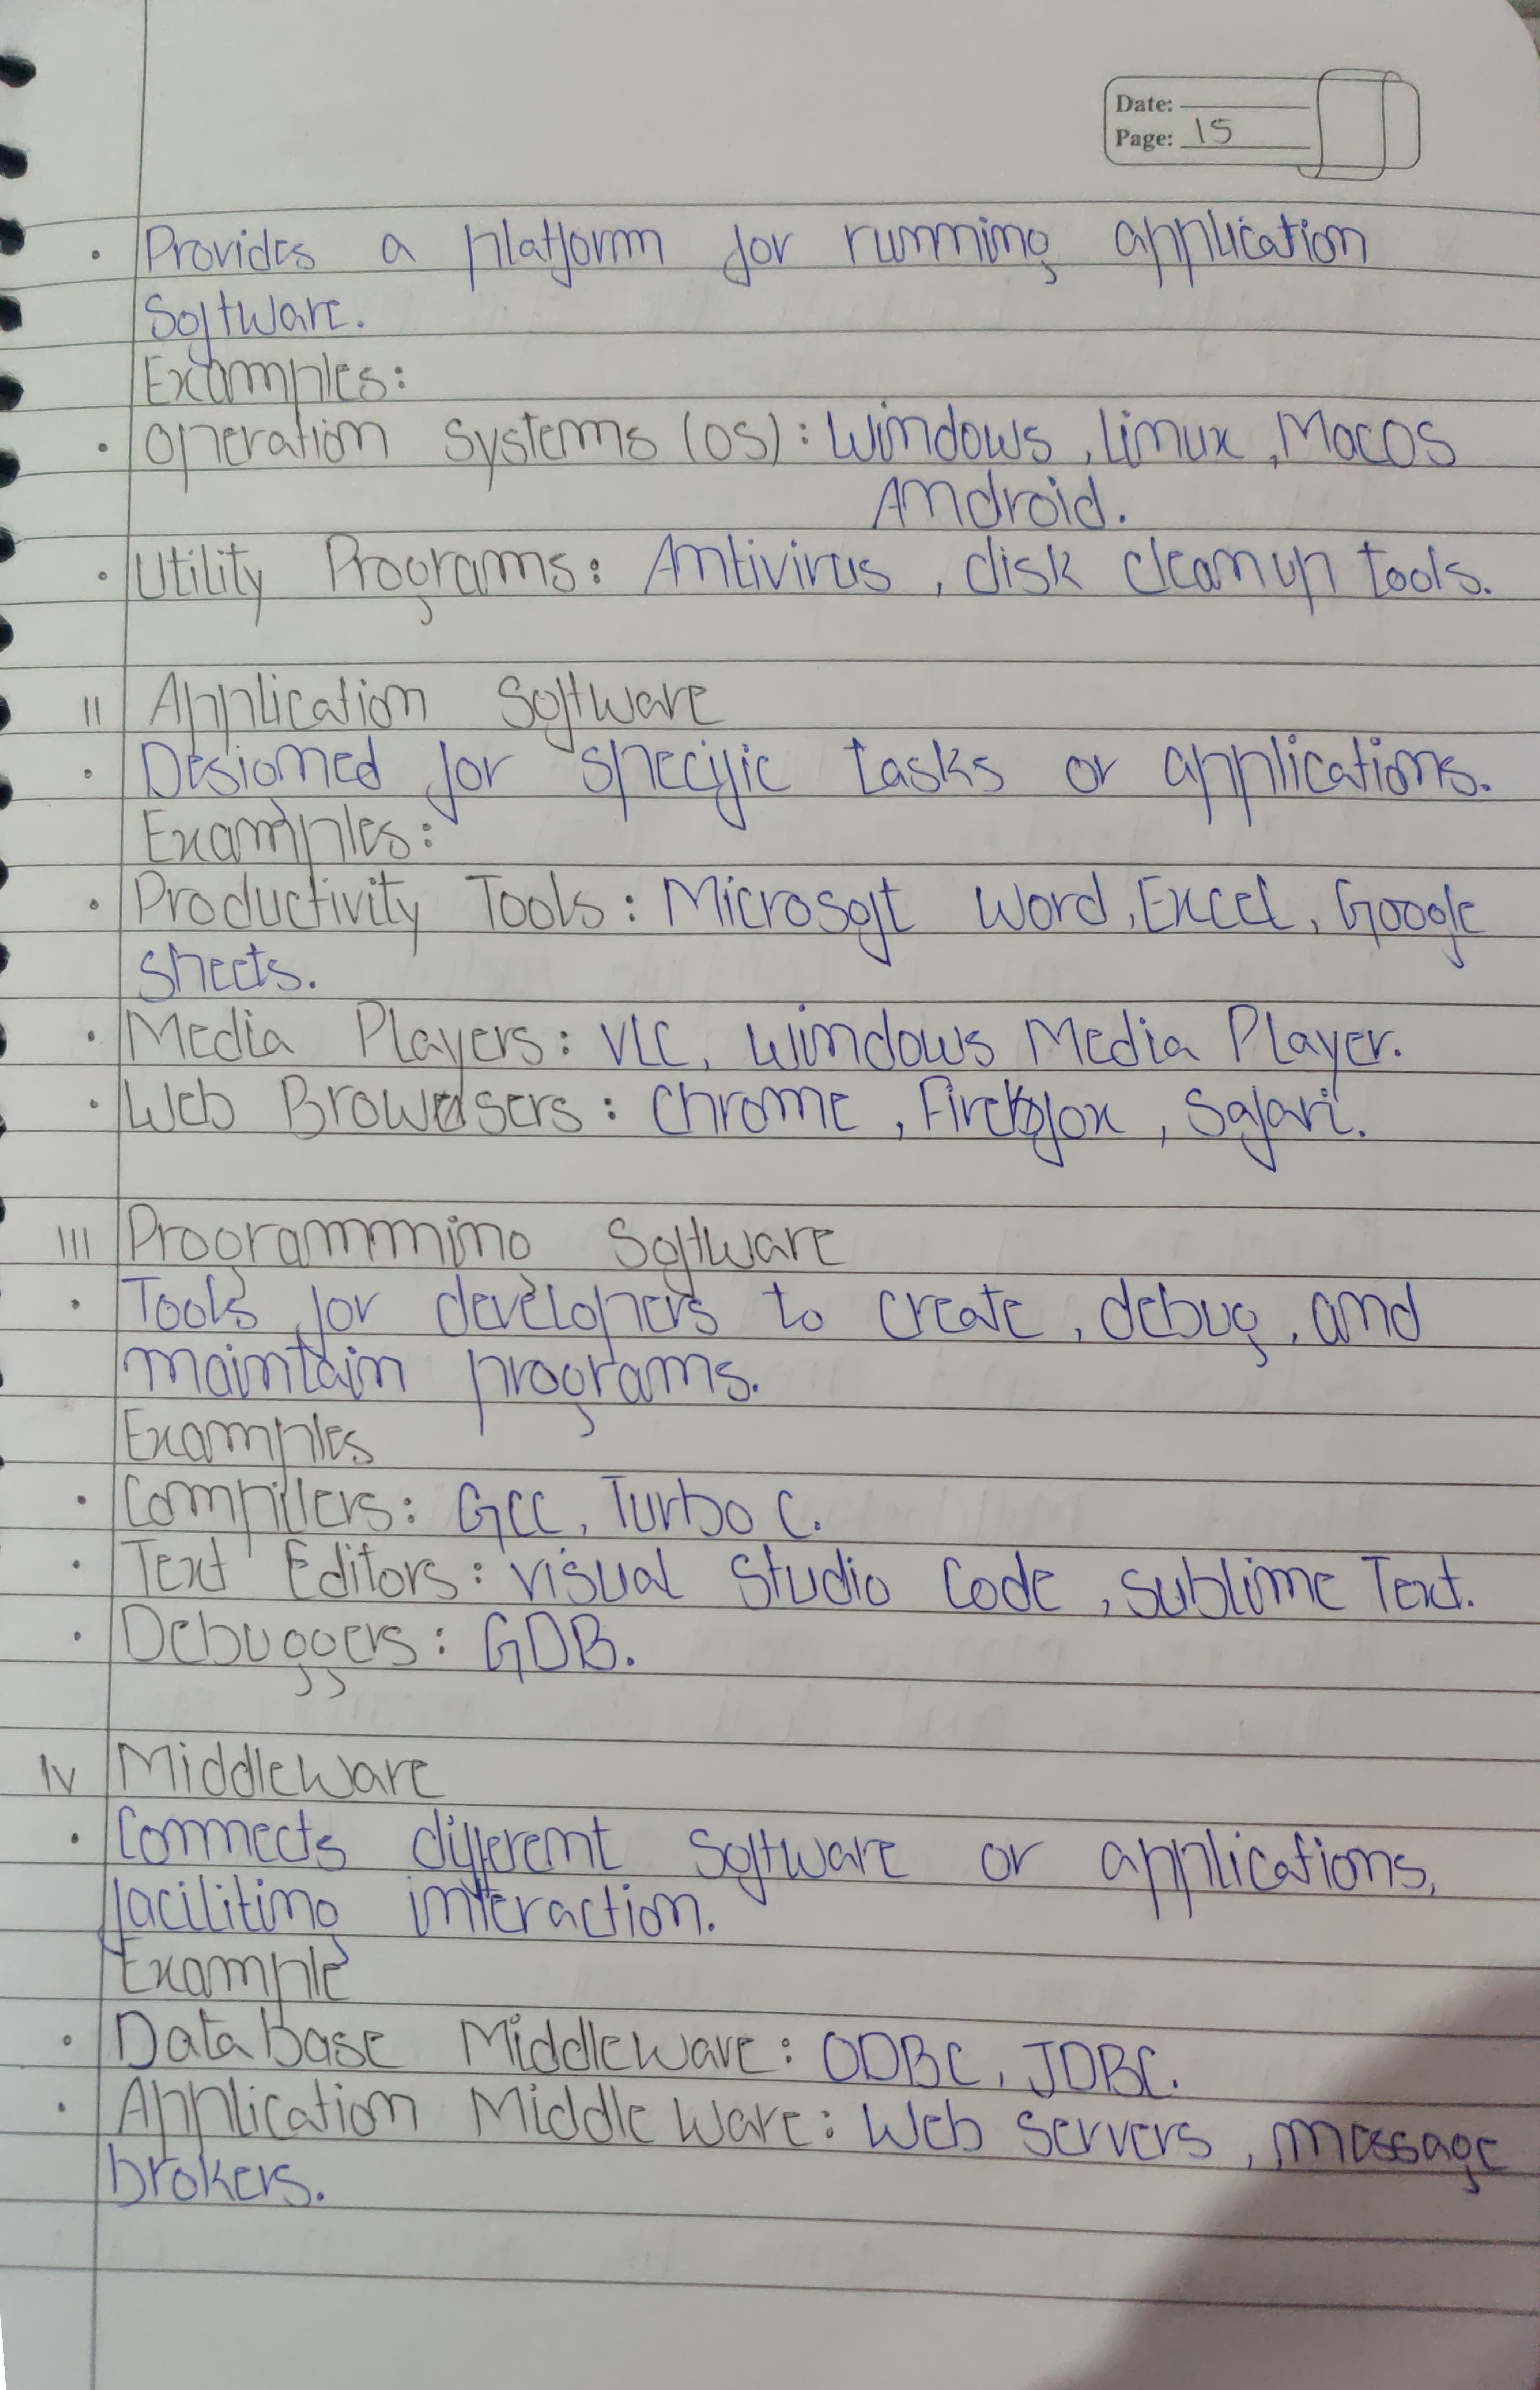 Date:
Page: 15
· Provides a platform for running application
Software.
Examples:
· Operation Systems (OS): Windows, Linux, MacOS
Android.
· Utility Programs: Antivirus, disk cleanup tools.
II Application Software
· Designed for specific tasks or applications.
Examples:
· Productivity Tools: Microsoft Word, Excel, Google
Sheets.
· Media Players: VLC, Windows Media Player.
· Web Browsers: Chrome, Firefox, Safari.
III Programmming Software
· Tools for developers to create, debug, and
maintain programs.
Examples
· Compilers: GCC, Turbo C.
· Text Editors: Visual Studio Code, Sublime Text.
· Debuggers: GDB.
IV Middleware
· Connects different software or applications,
faciliting interaction.
Example
· Database Middleware: ODBC, JDBC.
· Application Middle Ware: Web Servers, message
brokers.